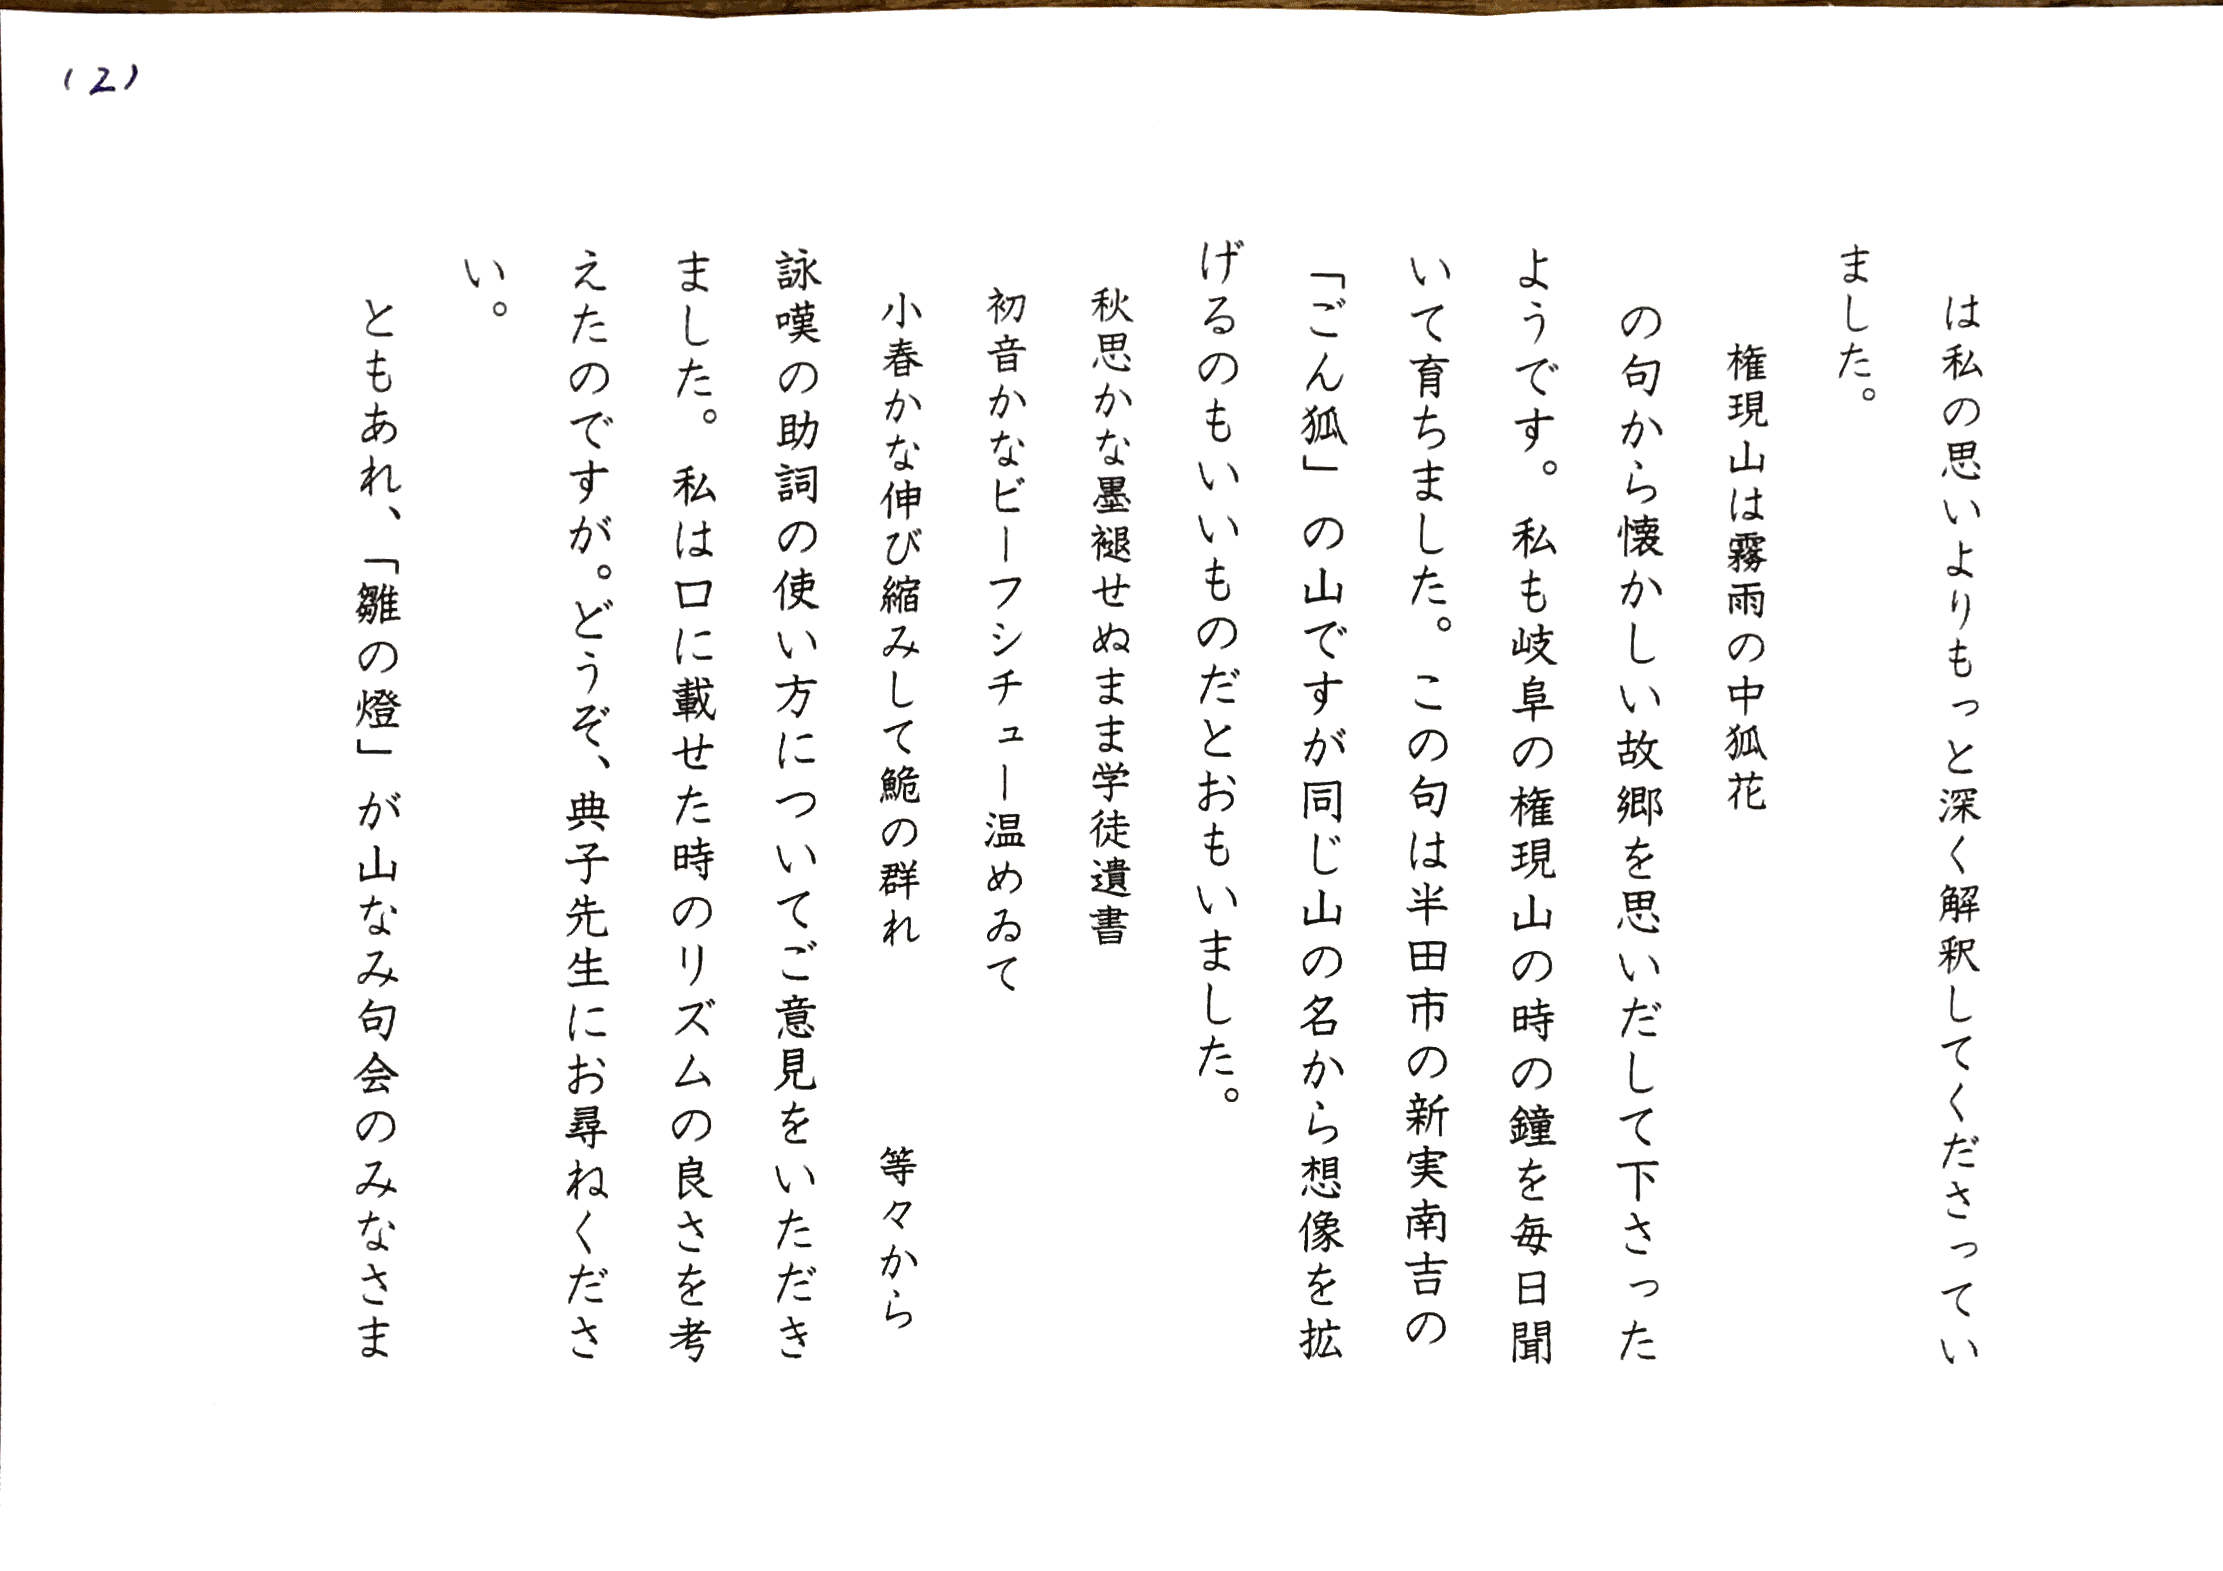 (2)
は私の思いよりもっと深く解釈してくださってい
ました。
権現山は霧雨の中狐花
の句から懐かしい故郷を思いだして下さった
ようです。私も岐阜の権現山の時の鐘を毎日聞
いて育ちました。この句は半田市の新実南吉の
「ごん狐」の山ですが同じ山の名から想像を拡
げるのもいいものだとおもいました。
秋思かな墨褪せぬまま学徒遺書
初音かなビーフシチュー温めゐて
小春かな伸び縮みして鮠の群れ　　　　等々から
詠嘆の助詞の使い方についてご意見をいただき
ました。私は口に載せた時のリズムの良さを考
えたのですが。どうぞ、典子先生にお尋ねくださ
い。
ともあれ、「雛の燈」が山なみ句会のみなさま